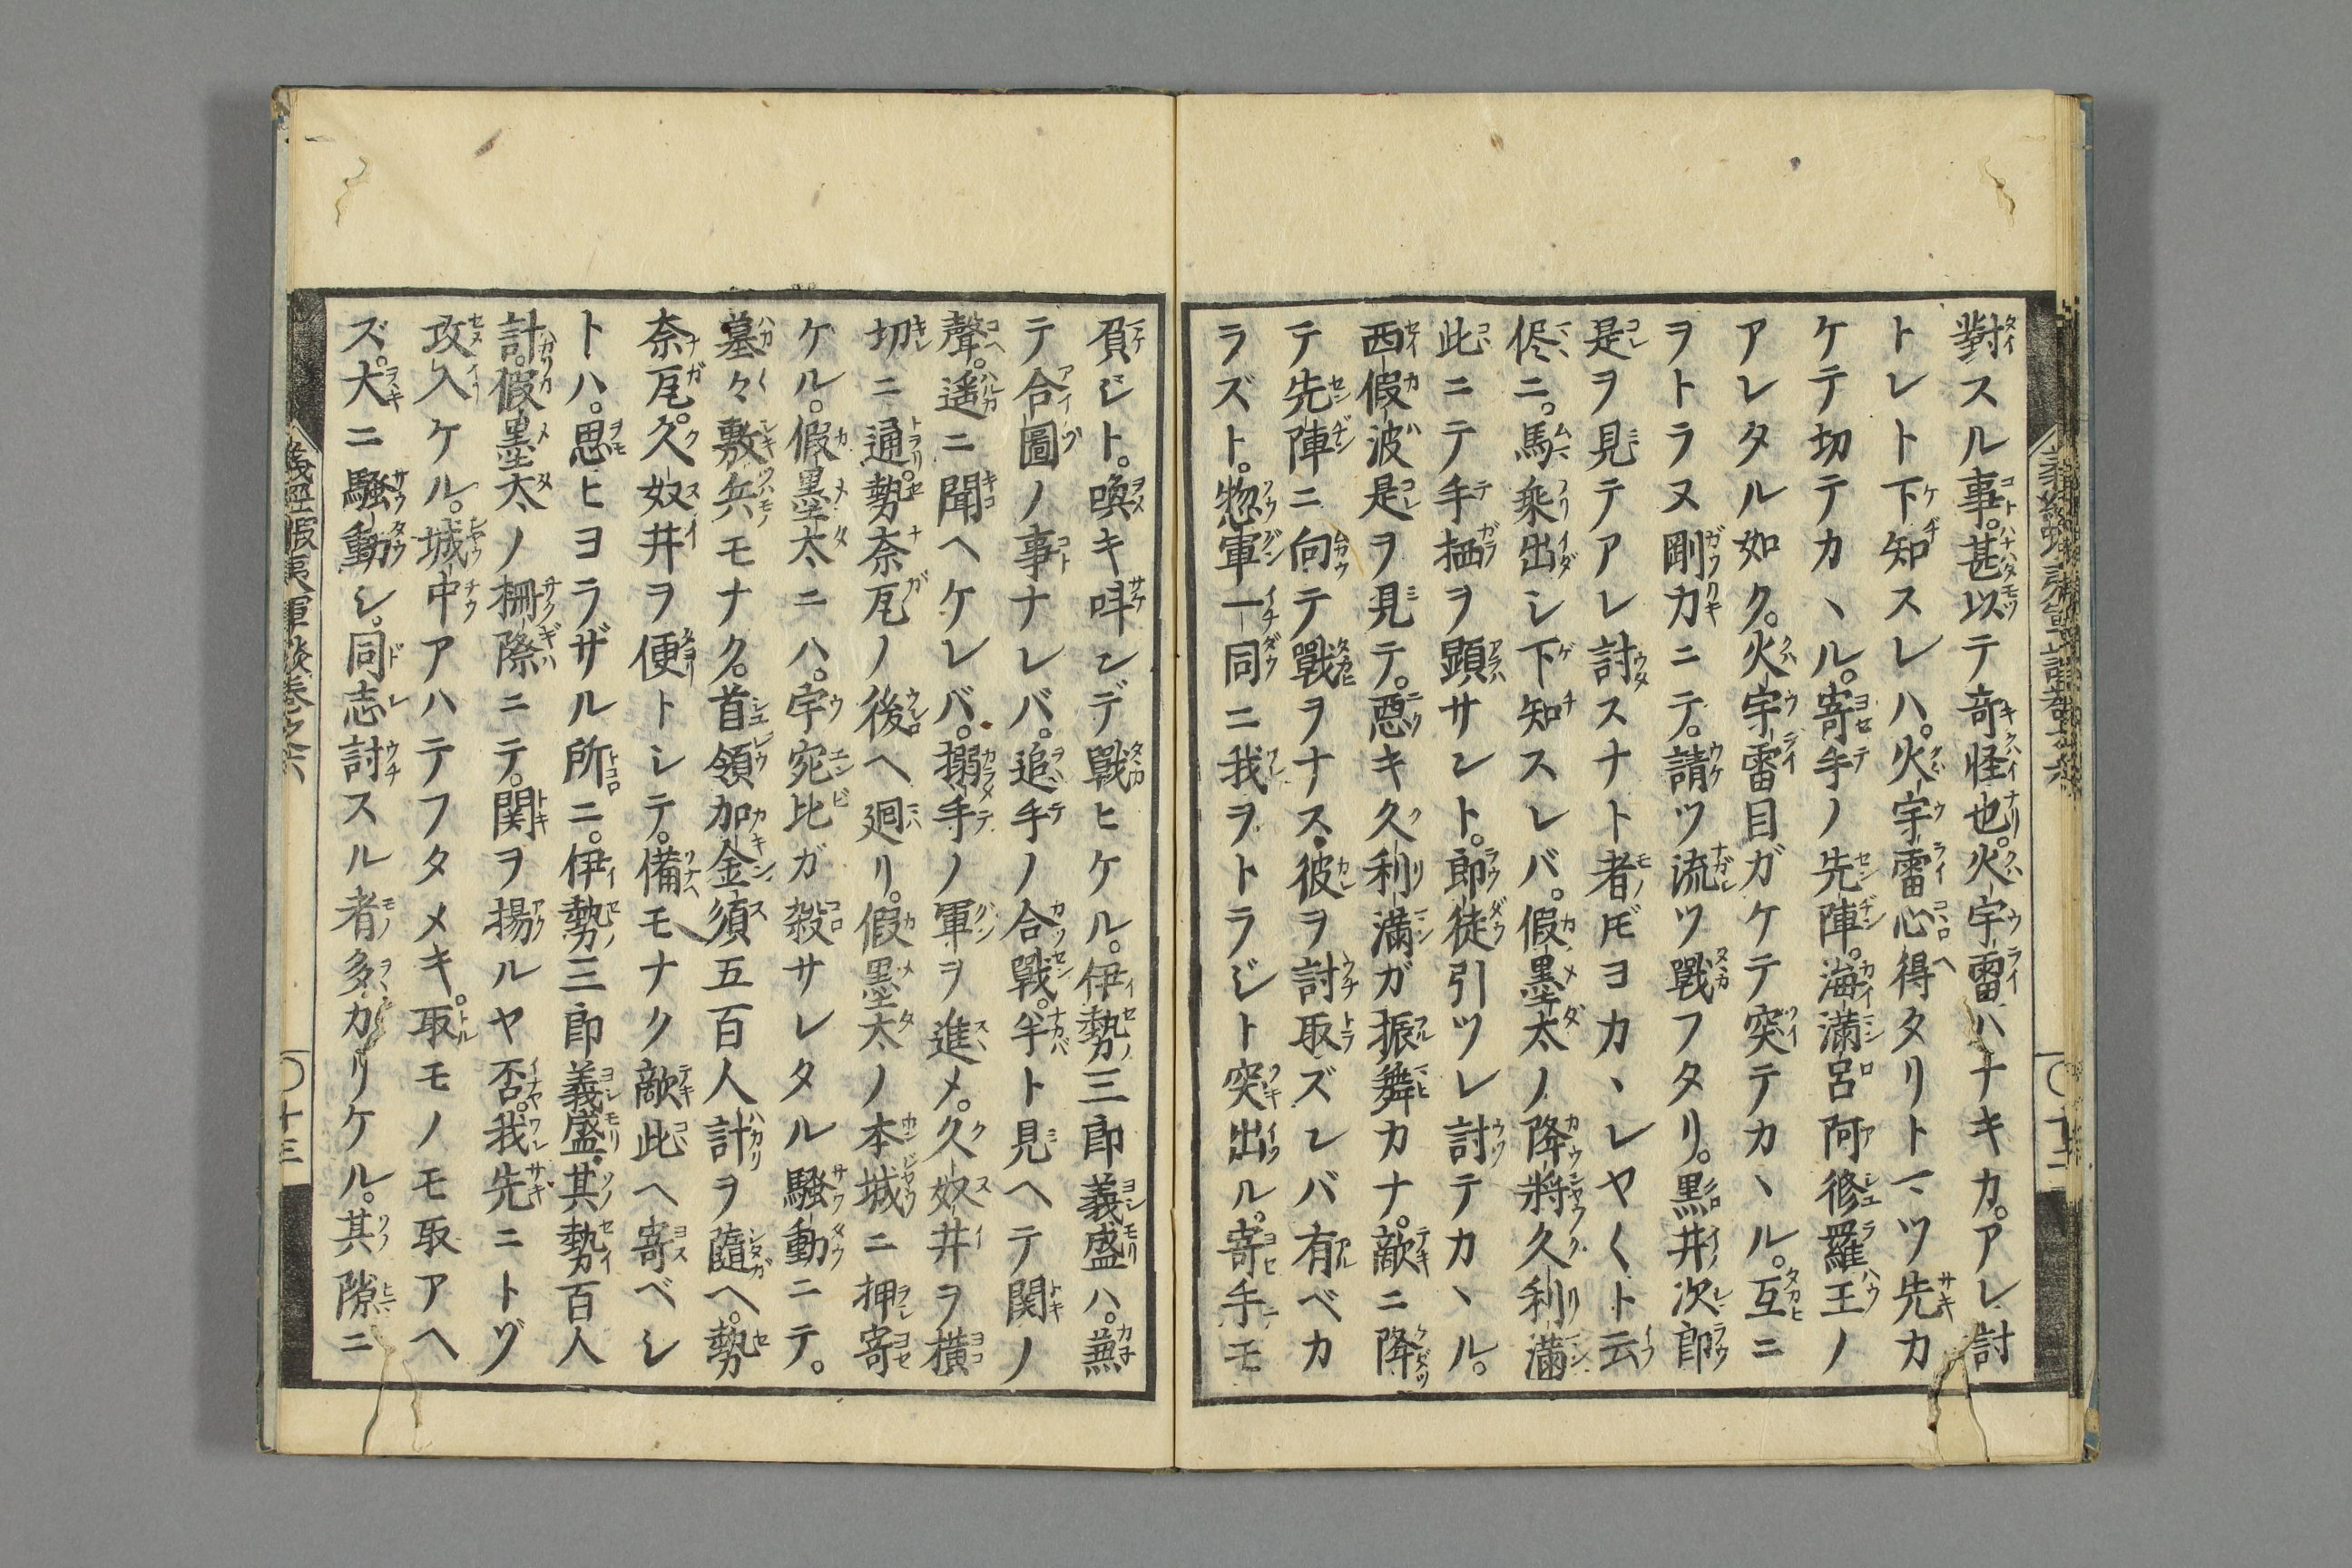 對スル事。甚以テ奇怪也。火宇雷ハナキカ。アレ討
トレト下知スレハ。火宇雷心得タリト一ツ先カ
ケテ切テカヽル。寄手ノ先陣。海滿呂阿修羅王ノ
アレタル如ク。火宇雷目ガケテ突テカヽル。互ニ
ヲトラヌ剛力ニテ。請ツ流ツ戰フタリ。黒井次郎
是ヲ見テアレ討スナト者𪜈ヨカヽレヤ〱ト云
侭ニ。馬乘出シ下知スレバ。假墨太ノ降將久利滿
此ニテ手栖ヲ顕サント。郎徒引ツレ討テカヽル。
西假波是ヲ見テ。惡キ久利滿ガ振舞カナ。敵ニ降
テ先陣ニ向テ戰ヲナス。彼ヲ討取ズレバ有ベカ
ラズト。惣軍一同ニ我ヲトラジト突出ル。寄手モ
負ジト。喚キ呌ンデ戰ヒケル。伊勢三郎義盛ハ。兼
テ合圖ノ事ナレバ。追手ノ合戰。半ト見ヘテ関ノ
聲。遙ニ聞ヘケレバ。搦手ノ軍ヲ進メ。久奴井ヲ横
切ニ通。勢奈瓦ノ後ヘ廻リ。假墨太ノ本城ニ押寄
ケル。假墨太ニハ。宇宛比ガ殺サレタル騒動ニテ。
墓々敷兵モナク。首領加金須五百人計ヲ隨ヘ。勢
奈瓦。久奴井ヲ便トシテ。備モナク敵此ヘ寄ベシ
トハ。思ヒヨラザル所ニ。伊勢三郎義盛。其勢百人
計。假墨太ノ柵際ニテ。関ヲ揚ルヤ否。我先ニトヅ
攻入ケル。城中アハテフタメキ。取モノモ取アヘ
ズ。大ニ騒動シ。同志討スル者多カリケル。其隙ニ
義經蝦夷軍談卷之六
〇十三